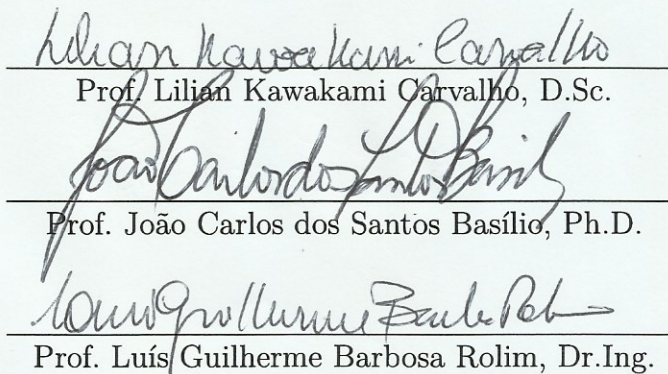 Lilian Kawakami Carvalho
Prof. Lilian Kawakami Carvalho, D.Sc.
João Carlos dos Santos Basilio
Prof. João Carlos dos Santos Basílio, Ph.D.
Luís Guilherme Barbosa Rolim
Prof. Luís Guilherme Barbosa Rolim, Dr.Ing.